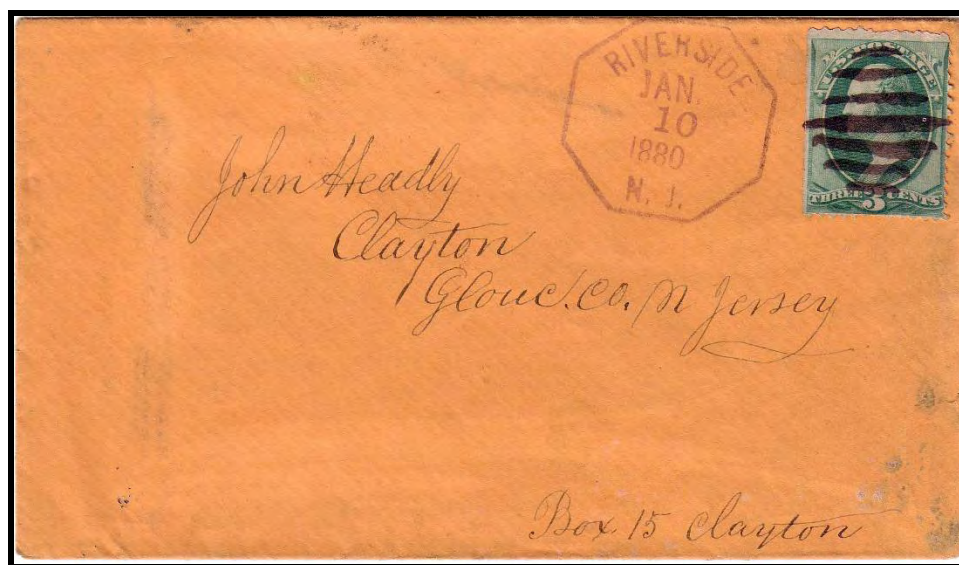 RIVERSIDE
JAN.
10
1880
N. J.
U.S. POSTAGE
THREE 3 CENTS
John Headly
Clayton
Glouc. Co. N Jersey
Box 15 Clayton